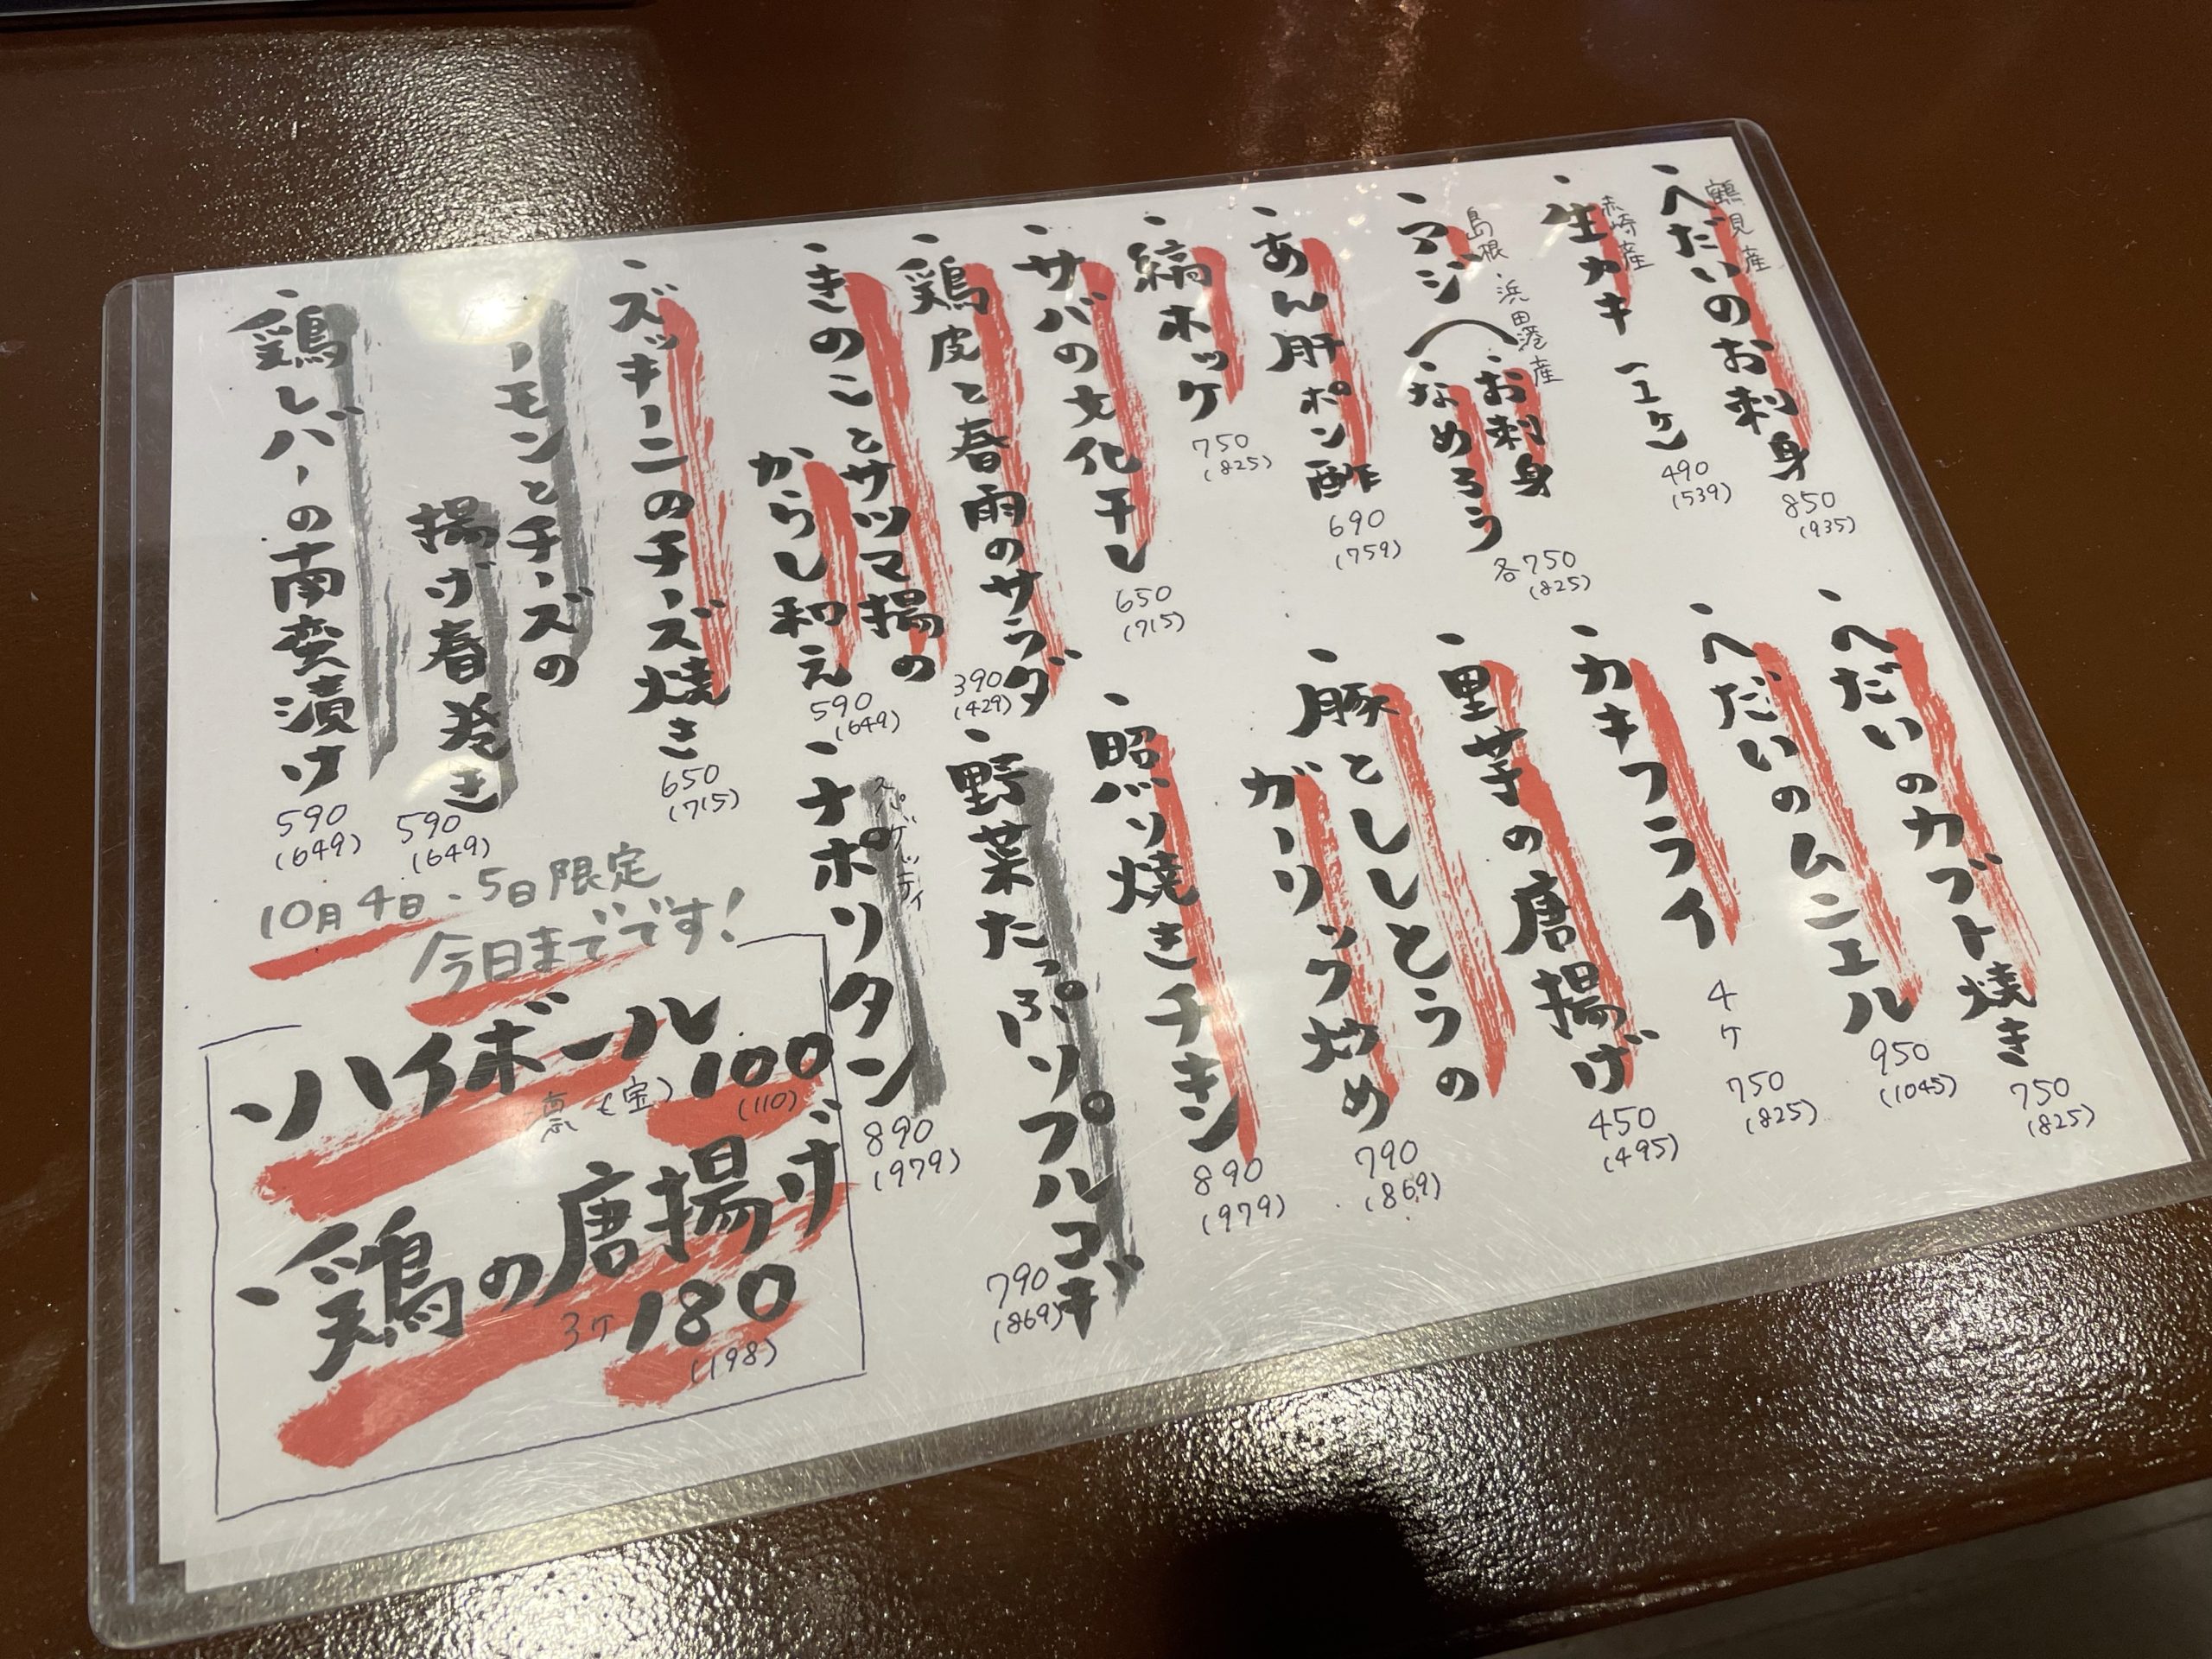 鶴見産
・へだいのお刺身
850
(935)
赤崎産
・生カキ 一コケ
490
(539)
島根・浜田港産
・アジ
・お刺身
・なめろう
各750
(825)
・あん肝ポン酢
690
(759)
・縞ホッケ
750
(825)
・サバの文化干し
650
(715)
・鶏皮と春雨のサラダ
390
(429)
・きのことサツマ揚の
からし和え
590
(649)
・ズッキーニのチーズ焼き
650
(715)
ーモンとチーズの
揚げ春巻き
590
(649)
・鶏レバーの南蛮漬け
590
(649)
・へだいのカブト焼き
750
(825)
・へだいのムニエル
950
(1045)
・カキフライ 4ケ
750
(825)
・里芋の唐揚げ
450
(495)
・豚とししとうの
ガーリック炒め
790
(869)
・照り焼きチキン
890
(979)
・野菜たっぷりプルコギ
790
(869)
スパゲッティ
・ナポリタン
890
(979)
10月4日・5日限定
今日までです!
・ハイボール
(宝)
100
(110)
・鶏の唐揚げ
3ケ 180
(198)